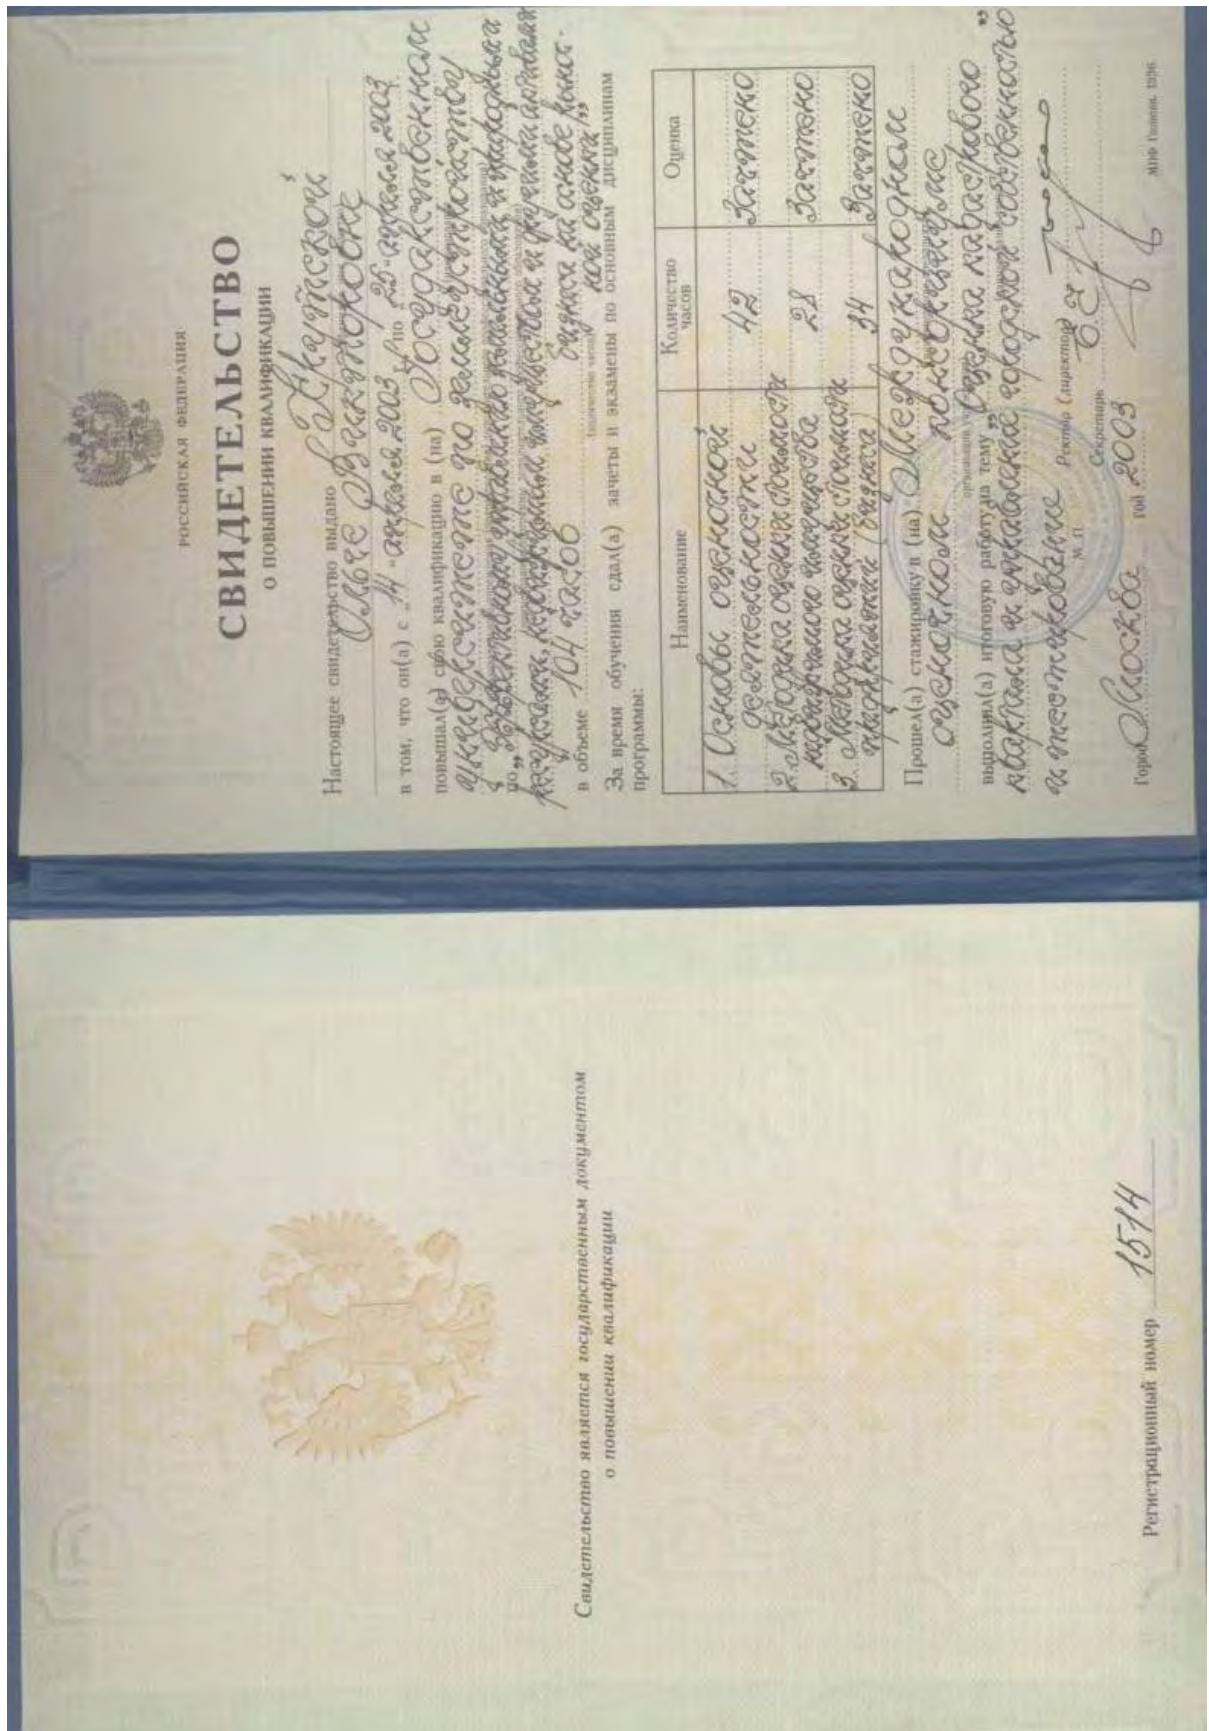 Свидетельство является государственным документом
о повышении квалификации
Регистрационный номер 1514
РОССИЙСКАЯ ФЕДЕРАЦИЯ
СВИДЕТЕЛЬСТВО
О ПОВЫШЕНИИ КВАЛИФИКАЦИИ
Настоящее свидетельство выдано
Ольге Викторовне
в том, что он(а) с „14“ апреля 2003 по „25“ апреля 2003
повышал(а) свою квалификацию в (на) Государственном
университете по землеустройству
по „
ресурсами, недвижимым имуществом и другими активами
бизнеса на основе рыноч-
ной оценки”
в объеме 104 часов
За время обучения сдал(а) зачеты и экзамены по основным дисциплинам
программы:
Наименование Количество часов Оценка
1. Основы оценочной
деятельности 42 Зачтено
2. Методика оценки стоимости
недвижимого имущества 28 Зачтено
3. Методика оценки стоимости
предприятия (бизнеса) 34 Зачтено
Прошел(а) стажировку в (на) Международном
оценочном консорциуме
выполнил(а) итоговую работу на тему „Оценка кадастрового
квартала и управление городской собственностью”
М. П. Ректор (директор)
Секретарь
Город Москва год 2003